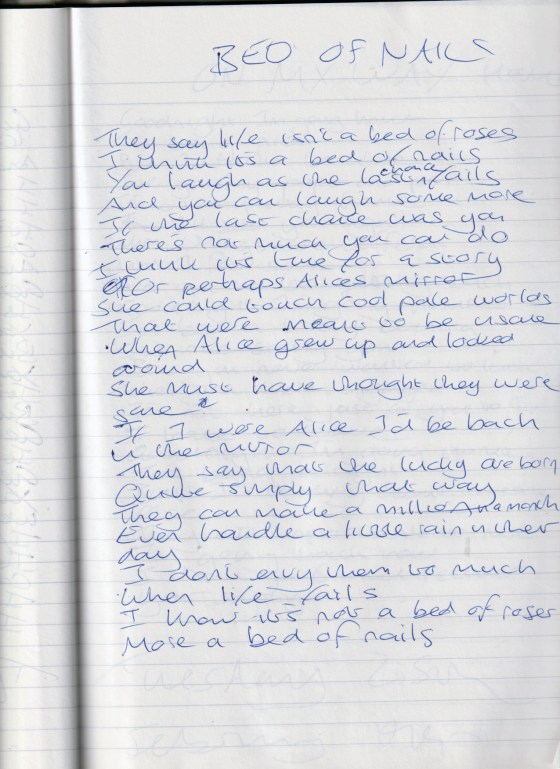 BED OF NAILS
They say life isn't a bed of roses
I think it's a bed of nails
You laugh as the last chance fails
And you can laugh some more
If the last chance was you
There's not much you can do
I think it's time for a story
Or perhaps Alices mirror
She could touch cool pale worlds
That were meant to be insane
When Alice grew up and looked
around
She must have thought they were
sane
If I were Alice I'd be back
in the mirror
They say that the lucky are born
Quite simply that way
They can make a million a month
Even handle a little rain in their
day
I don't envy them too much
When life fails
I know it's not a bed of roses
More a bed of nails